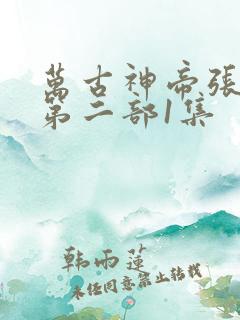 萬古神帝張
第二部1集
韩雨莲
未经同意禁止转载